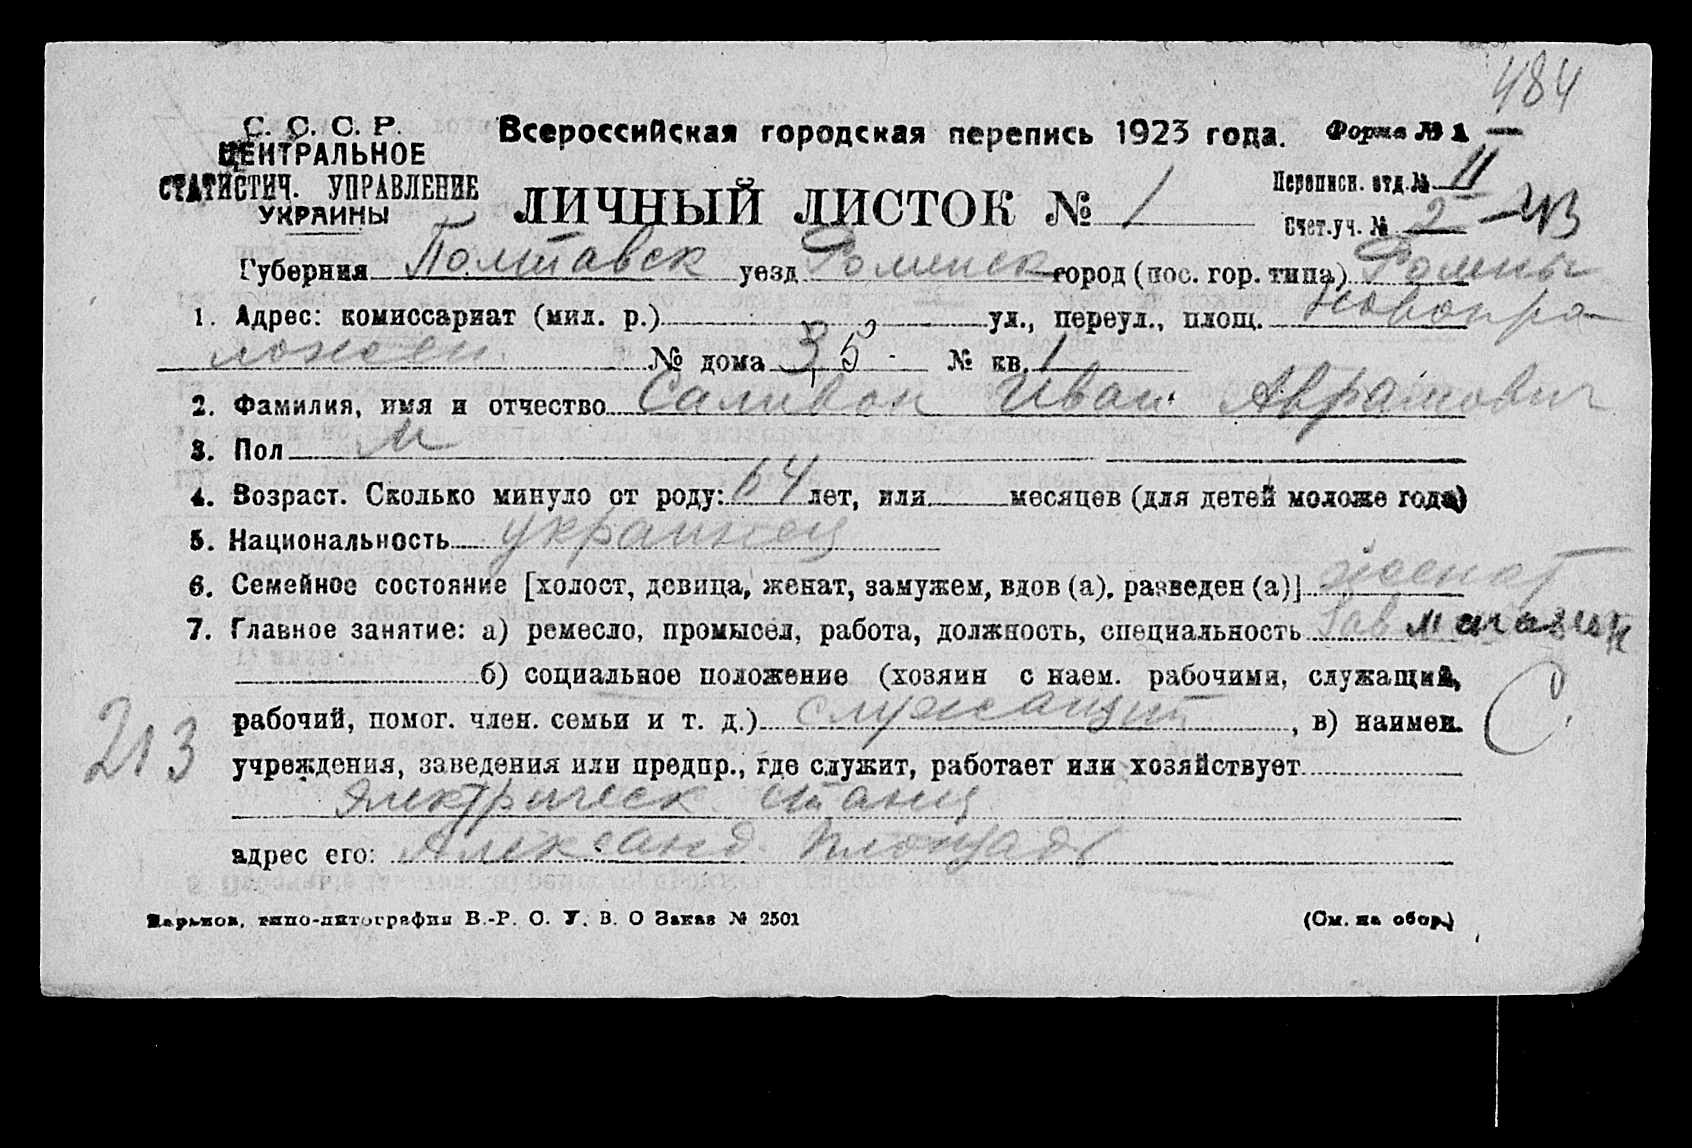 484
С. С. С. Р.
ЦЕНТРАЛЬНОЕ
СТАТИСТИЧ. УПРАВЛЕНИЕ
УКРАИНЫ
Всероссийская городская перепись 1923 года. Форма № 1
ЛИЧНЫЙ ЛИСТОК № 1
Переписн. отд. № II
Счет. уч. № 2
Губерния Полтавск уезд Роменск город (пос. гор. типа) Ромны
1. Адрес: комиссариат (мил. р.) ул., переул., площ. Новопро
ложен. № дома 35 № кв. 1
2. Фамилия, имя и отчество Саливон Иван Аврамович
3. Пол М
4. Возраст. Сколько минуло от роду: 64 лет, или месяцев (для детей моложе года)
5. Национальность украинец
6. Семейное состояние [холост, девица, женат, замужем, вдов (а), разведен (а)] женат
7. Главное занятие: а) ремесло, промысел, работа, должность, специальность Зав магазин
б) социальное положение (хозяин с наем. рабочими, служащий,
рабочий, помог. член. семьи и т. д.) служащий, в) наимен.
213
С
учреждения, заведения или предпр., где служит, работает или хозяйствует
Электрическ. станц
адрес его: Александ. Площадь
Харьков, типо-литография В.-Р. О. У. В. О Заказ № 2501
(См. на обор.)